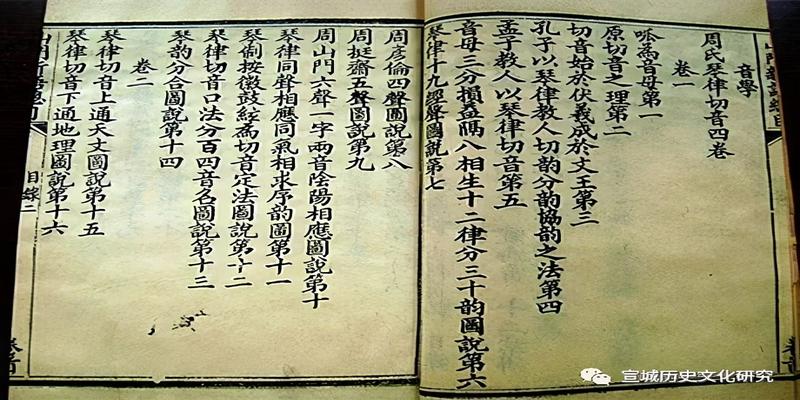 音學
周氏琴律切音四卷
卷一
呱為音母第一
原切音之理第二
切音始於伏羲成於文王第三
孔子以琴律教人切韵分韵協韵之法第四
孟子教人以琴律切音第五
音母三分損益隔八相生十二律分三十韵圖說第六
琴律十九經聲圖說第七
周彥倫四聲圖說第八
周挺齋五聲圖說第九
周山門六聲一字兩音陰陽相應圖說第十
琴律同聲相應同氣相求序韵圖第十一
琴侷按徽鼓絃為切音定法圖說第十二
琴律切音口法分百四音名圖說第十三
琴韵分合圖說第十四
卷二
琴律切音上通天文圖說第十五
琴律切音下通地理圖說第十六
目錄二
宣城历史文化研究